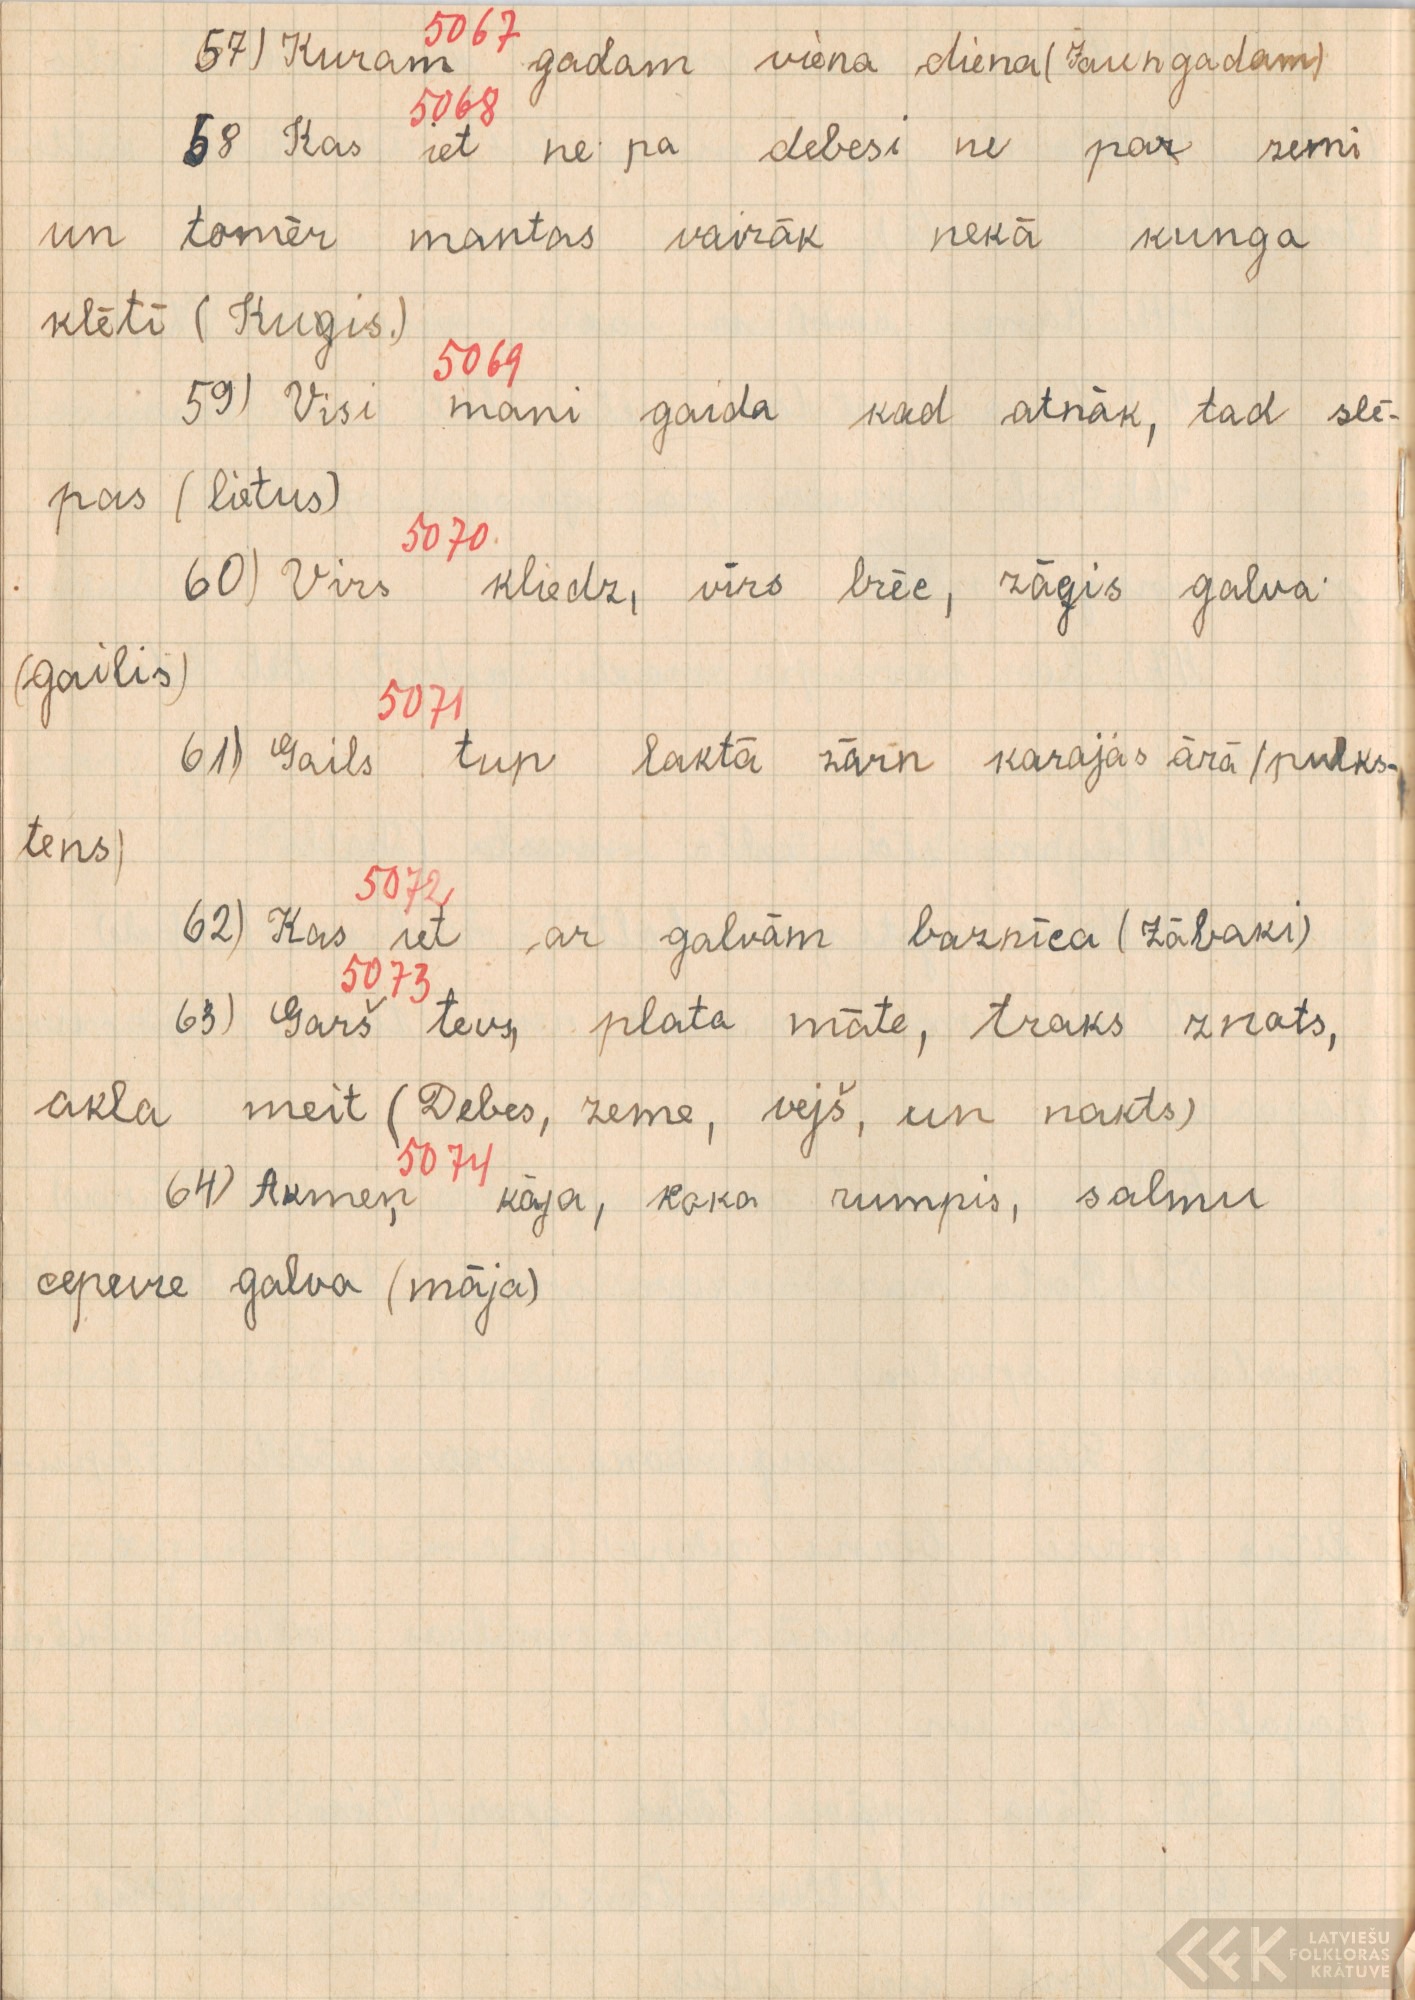 5067
57) Kuram gadam viena diena (Jaungadam)
5068
58 Kas iet ne pa debesi ne par zemi
un tomēr mantas vairāk nekā kunga
klētī (Kuģis.)
5069
59) Visi mani gaida kad atnāk, tad slē-
pas (lietus)
5070
60) Virs kliedz, virs brēc, zāģis galva
(gailis)
5071
61) Gails tup laktā zārn karajās ārā (pulks-
tens)
5072
62) Kas iet ar galvām baznīca (Zābaki)
5073
63) Garš tevs, plata māte, traks znots,
akla meit (Debes, zeme, vejš, un nakts)
5074
64) Akmeņ kāja, koka rumpis, salmu
cepure galva (māja)
LATVIEŠU
FOLKLORAS
KRĀTUVE